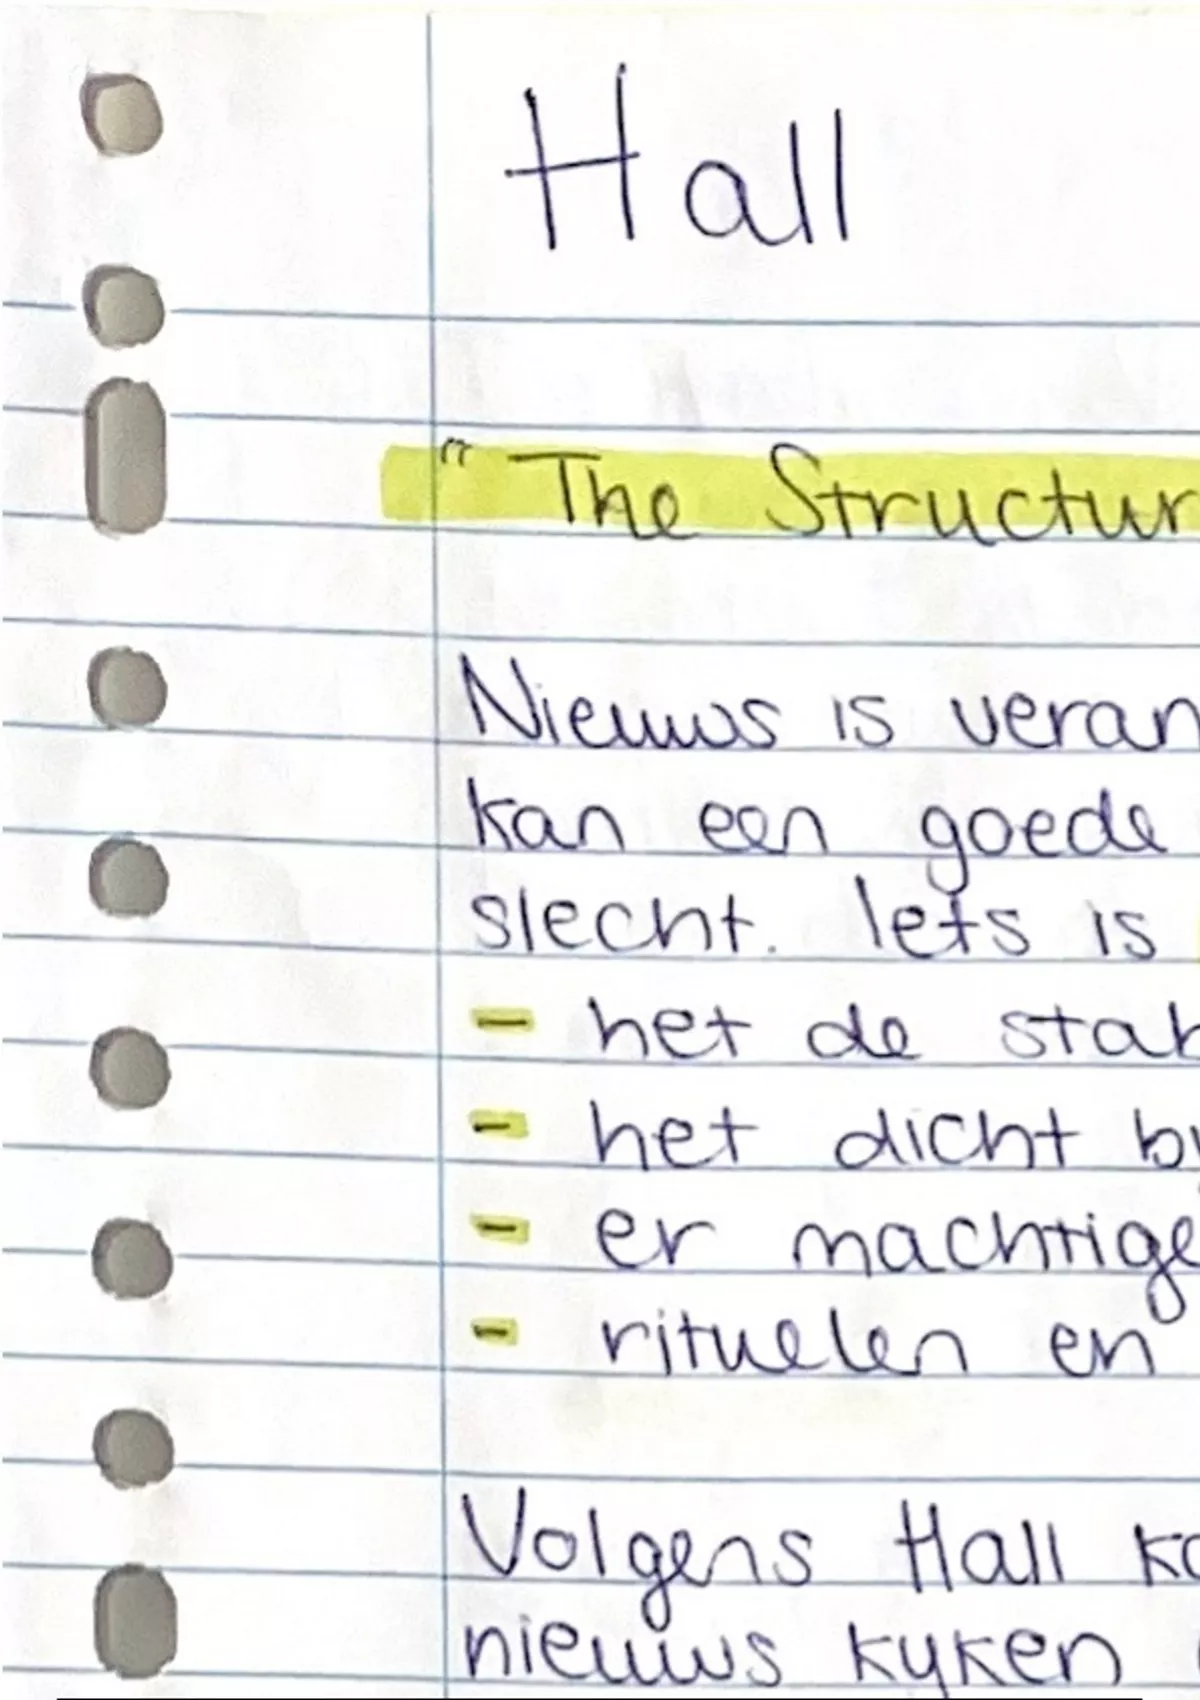 Hall
" The Structur
Nieuws is veran
kan een goede
slecht. Iets is
- het de stat
- het dicht bij
- er machtige
- rituelen en
Volgens Hall ka
nieuws kijken